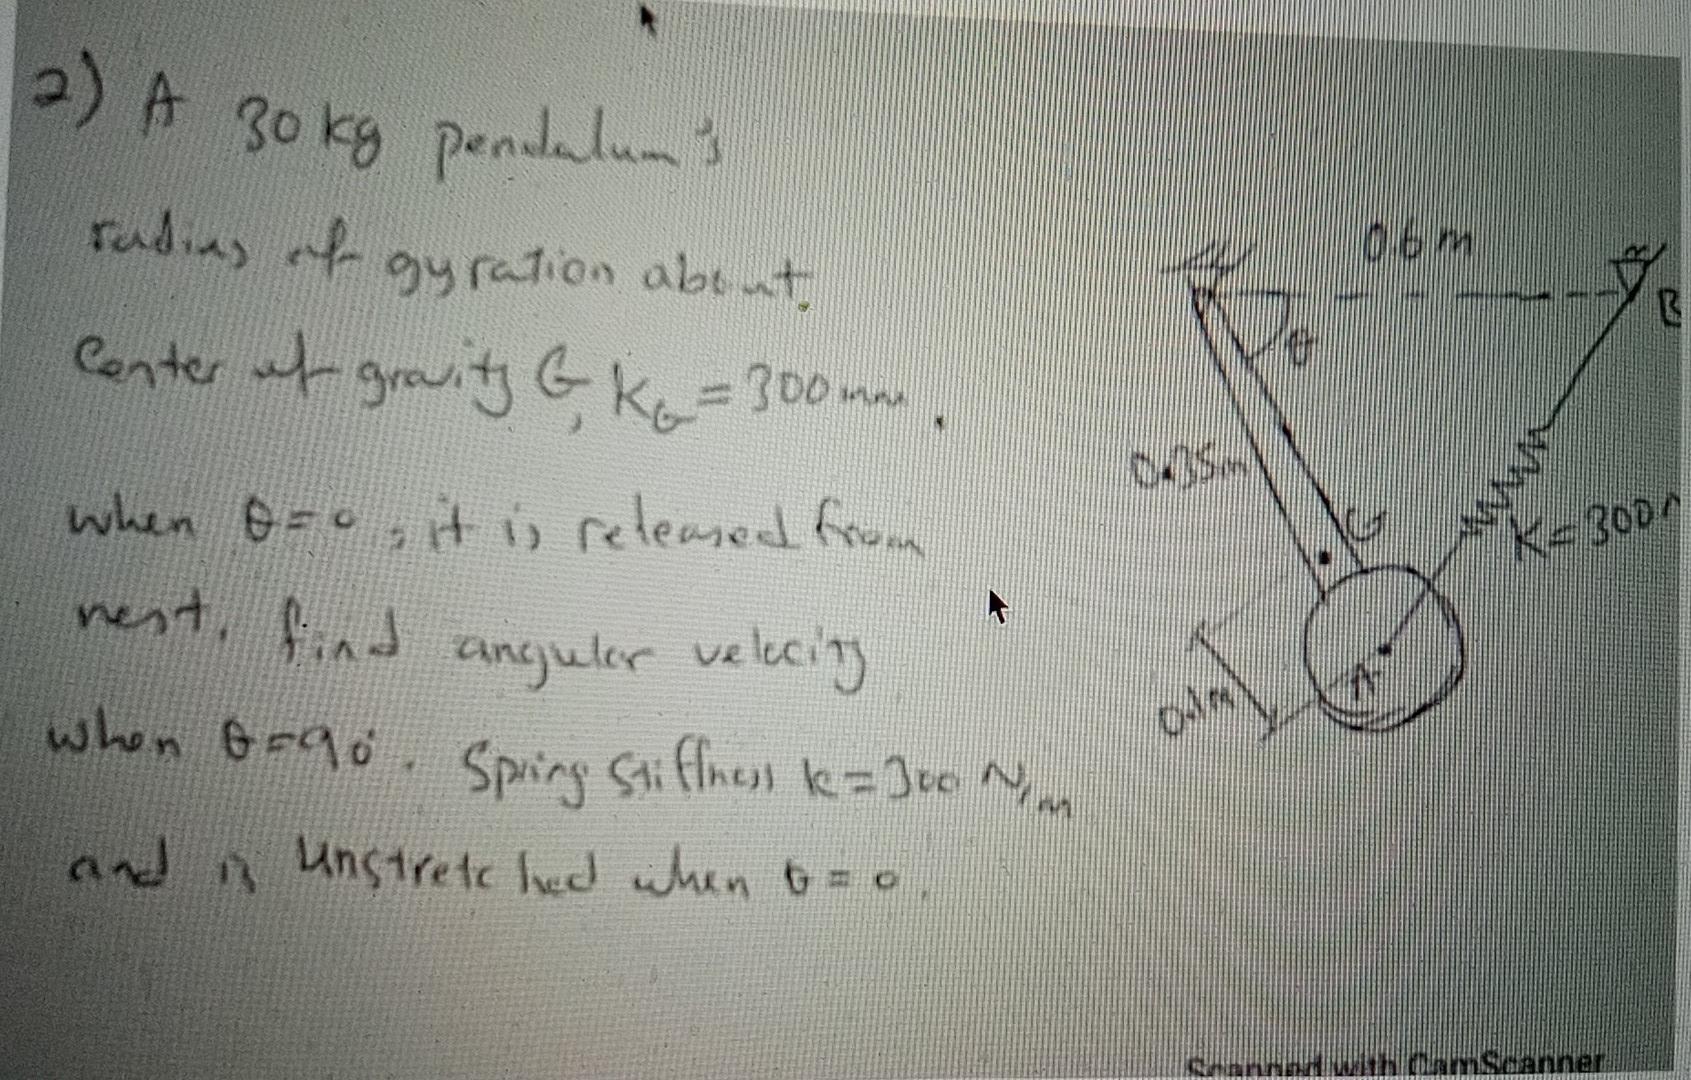 2) A 30 kg pendulum's
radius of gyration about
Center of gravity G, kG = 300 mm.
when θ=0, it is released from
rest, find angular velocity
when θ=90°. Spring stiffness k=300 N/m
and is Unstretched when θ=0.
0.6 m
B
θ
0.35m
G
K=300
A
0.1m
Scanned with CamScanner